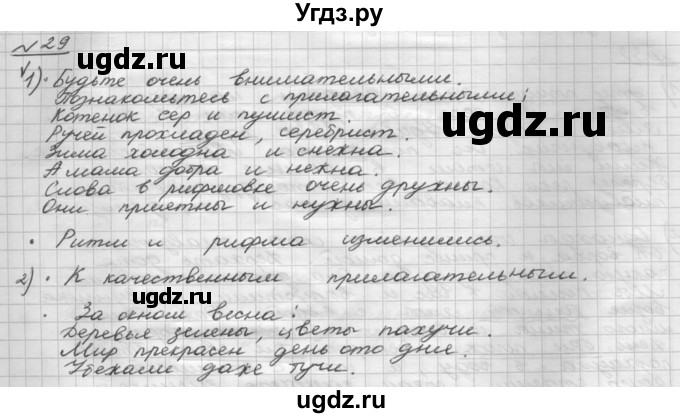 Угдз.ру
№ 29
1) · Будьте очень внимательными.
Познакомьтесь с прилагательными;
Котенок сер и пушист.
Ручей прохладен, серебрист.
Зима холодна и снежна.
А мама добра и нежна.
Слова в рифмовке очень дружны.
Они приятны и нужны.
· Ритм и рифма изменились.
2) · К качественным прилагательным.
· За окном весна:
Деревья зелены, цветы пахучи.
Мир прекрасен день ото дня.
Убежали даже тучи.
ugdz.ru
ugdz.ru
ugdz.ru
ugdz.ru
ugdz.ru
ugdz.ru